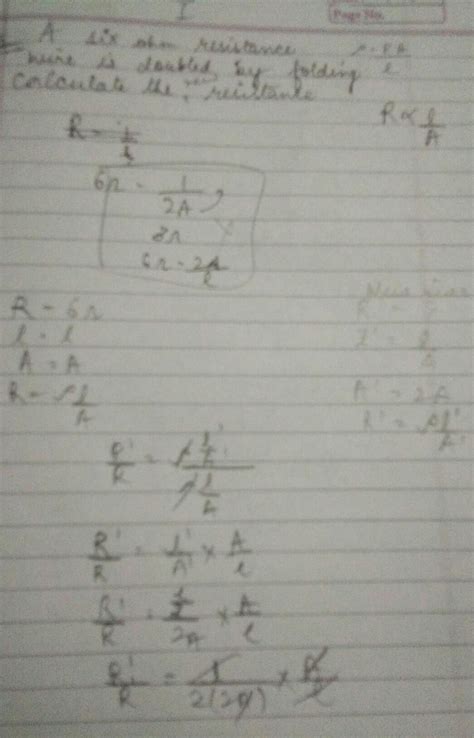 I
Page No.
A six ohm resistance
wire is doubled by folding
Calculate the new resistance
RA
l
R ∝ l/A
R =
6Ω = 1/2A
3Ω
6Ω = 2A/l
R = 6Ω
l = l
A = A
R = ρl/A
l' =
A' = 2A
R' = ρl'/A'
R'/R = ρ l'/A' / ρ l/A
R'/R = l'/A' × A/l
R'/R = l/2 / 2A × A/l
R'/R = l / 2(2A) × A/l